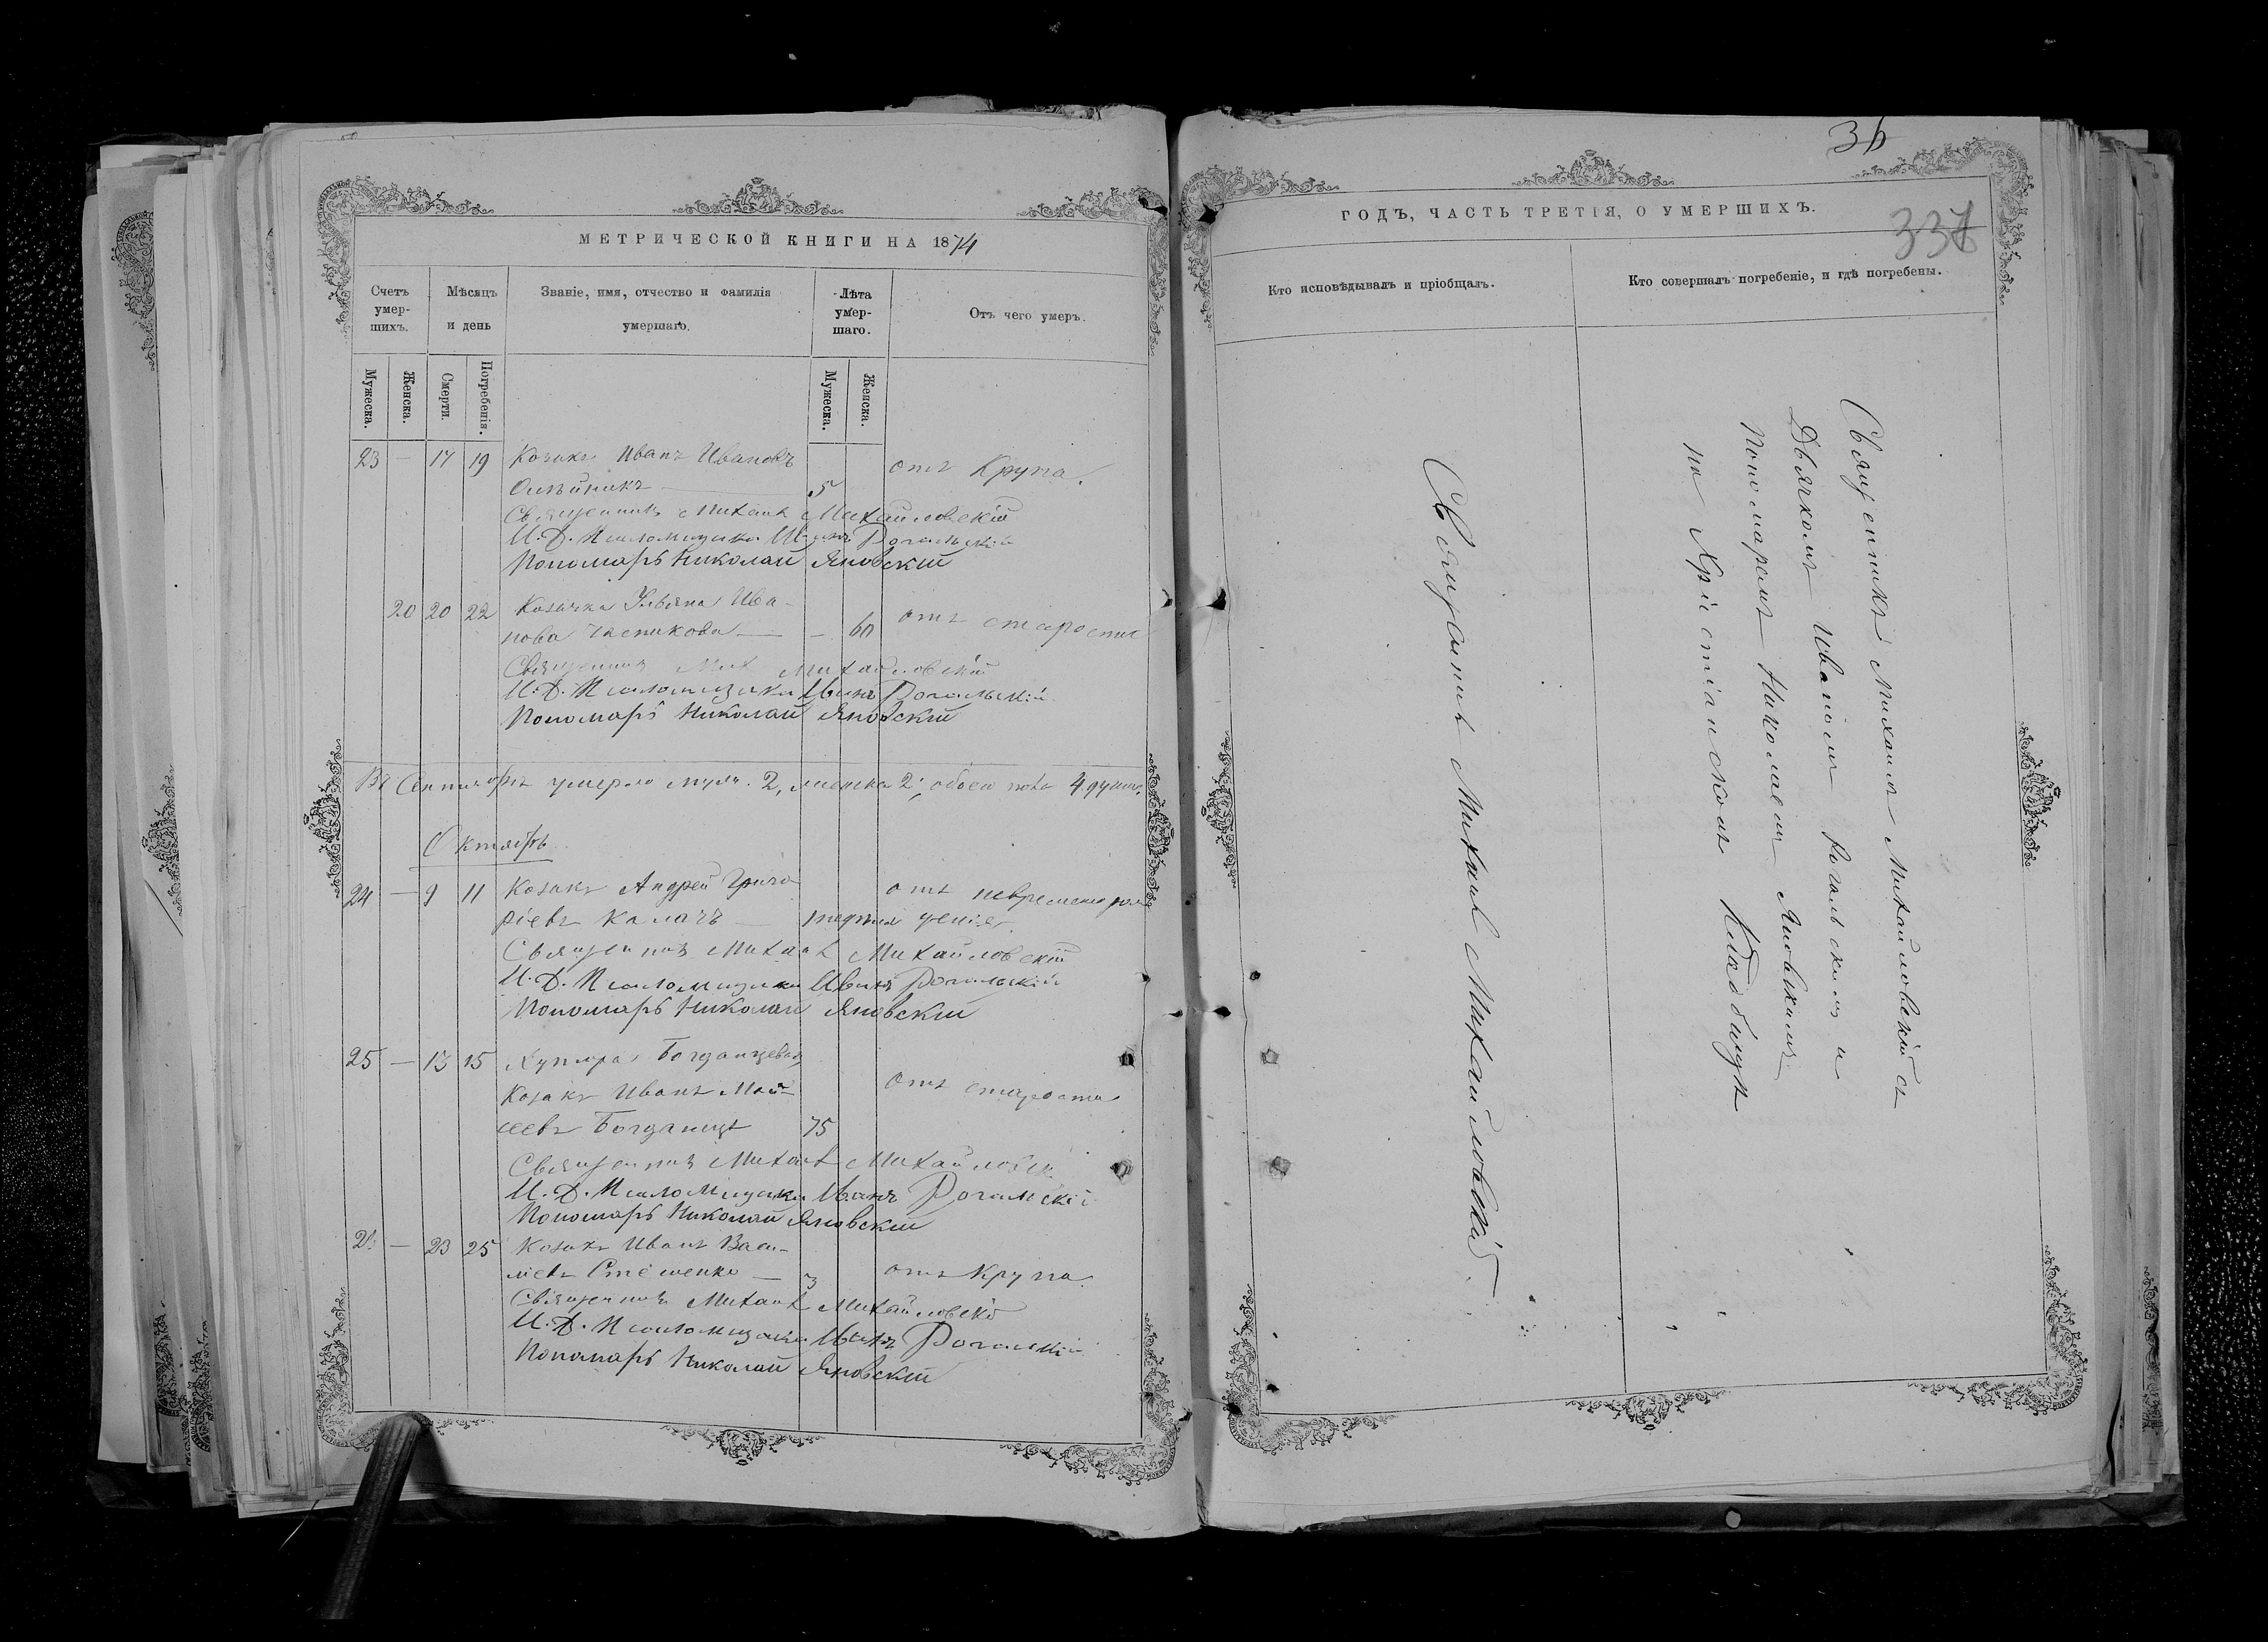 МЕТРИЧЕСКОЙ КНИГИ НА 1874
Счетъ умер-шихъ.
Мѣсяцъ и день
Званіе, имя, отчество и фамилія умершаго.
Лѣта умер-шаго.
Отъ чего умеръ.
Мужеска.
Женска.
Смерти.
Погребенія.
Мужеска.
Женска.
23 — 17 19 Козакъ Иванъ Ивановъ
Олѣйникъ — 5 отъ Крупа.
Священникъ Михаилъ Михайловскій
И. Д. Псаломщика Иванъ Рогальскій
Пономарь Николай Яновскій
20 20 22 Козачка Ульяна Ива-
нова — — 60 отъ старости
Священникъ Мих Михайловскій
И. Д. Псаломщика Иванъ Рогальскій
Пономарь Николай Яновскій
Въ Сентябрѣ умерло муж. 2, женска 2; обоего пола 4 души.
Октябрь
24 — 9 11 Козакъ Андрей Григо-
ріевъ Калачъ —
Священникъ Михаилъ Михайловскій
И. Д. Псаломщика Иванъ Рогальскій
Пономарь Николай Яновскій
25 — 13 15 Хутора Богданцевъ
Козакъ Иванъ Мой- отъ старости
сеевъ Богданецъ 75
Священникъ Михаилъ Михайловскі
И. Д. Псаломщика Иванъ Рогальскій
Пономарь Николай Яновскій
— 23 25 Козакъ Иванъ Васи-
ліевъ Стешенко — 3 отъ Крупа.
Священникъ Михаилъ Михайловскій
И. Д. Псаломщика Иванъ Рогальскій
Пономарь Николай Яновскій
36
337
ГОДЪ, ЧАСТЬ ТРЕТІЯ, О УМЕРШИХЪ.
Кто исповѣдывалъ и пріобщалъ.
Кто совершалъ погребеніе, и гдѣ погребены.
Священникъ Михаилъ Михайловскій
Священникъ Михаилъ Михайловскій съ
Дьячкомъ Иваномъ Рогальскимъ и
Пономаремъ Николаемъ Яновскимъ
на Христіанскомъ Кладбищѣ